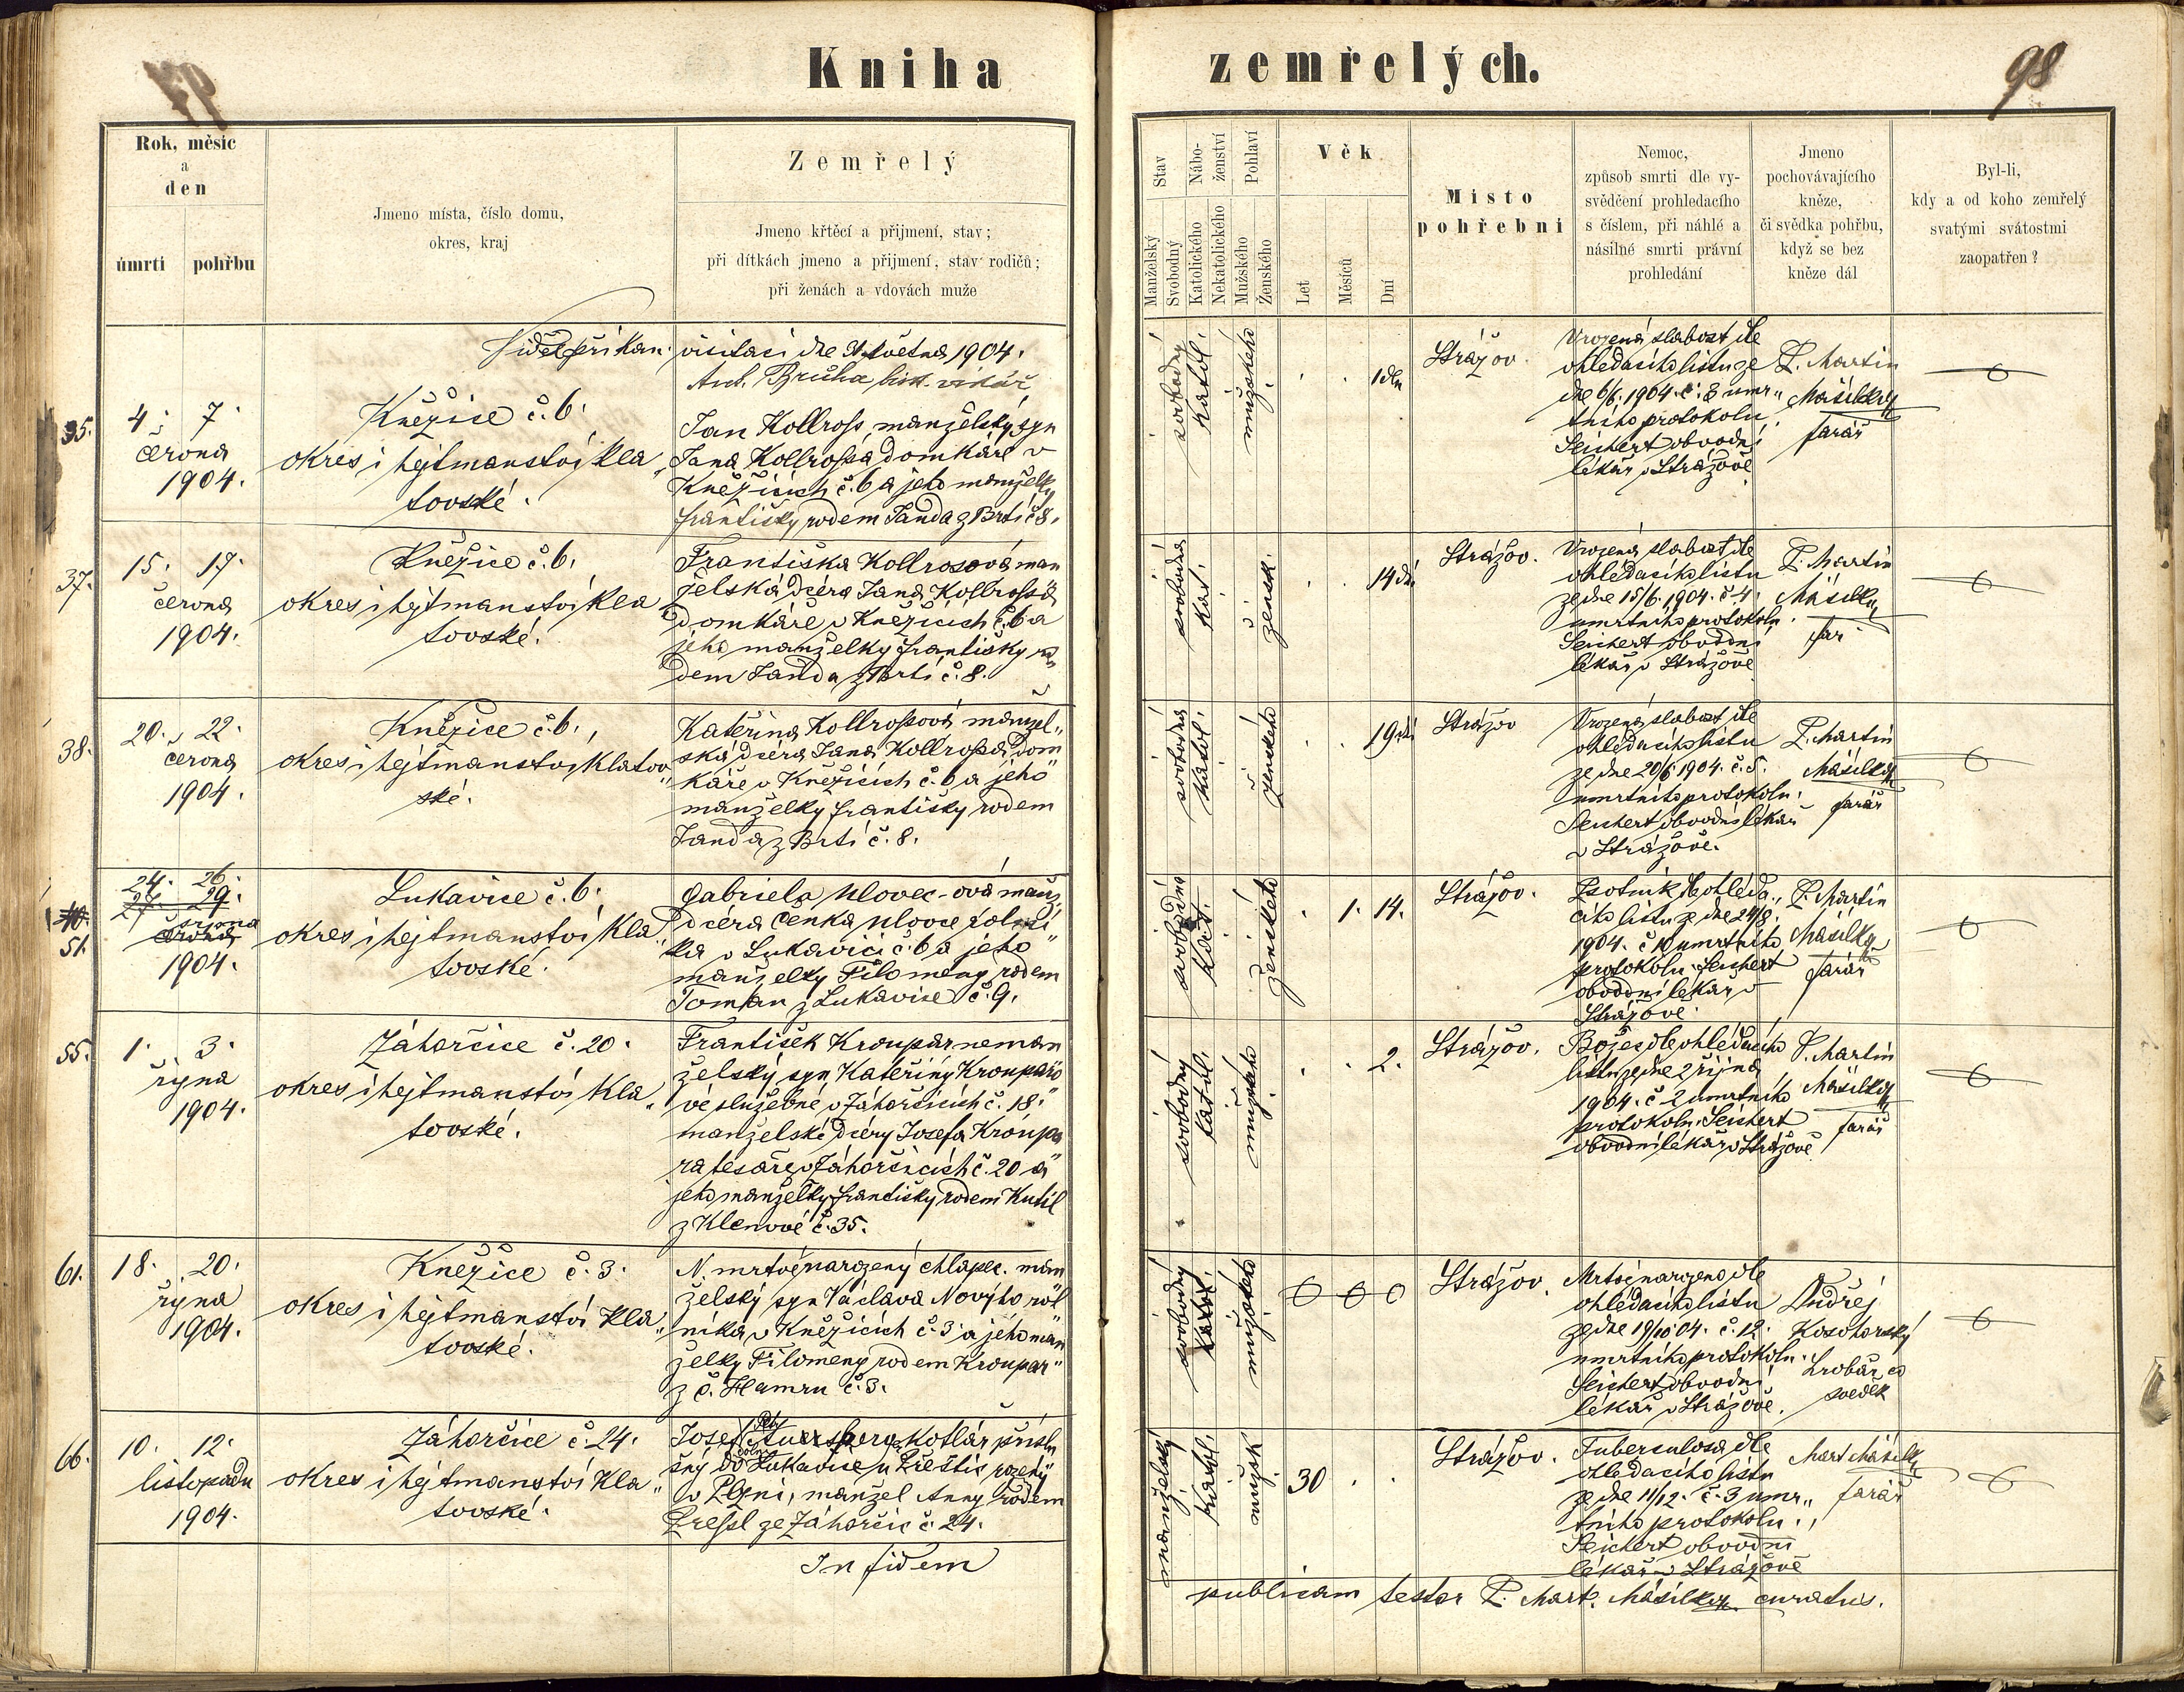 Kniha
zemřelých.
98
Rok, měsíc
a
den
úmrtí
pohřbu
Jmeno místa, číslo domu,
okres, kraj
Zemřelý
Jmeno křtěcí a přijmení, stav;
při dítkách jmeno a přijmení, stav rodičů;
při ženách a vdovách muže
Stav
Manželský
Svobodný
Nábo-
ženství
Katolického
Nekatolického
Pohlaví
Mužského
Ženského
Věk
Let
Měsíců
Dní
Místo
pohřební
Nemoc,
způsob smrti dle vy-
svědčení prohledacího
s číslem, při náhlé a
násilné smrti právní
prohledání
Jmeno
pochovávajícího
kněze,
či svědka pohřbu,
když se bez
kněze dál
Byl-li,
kdy a od koho zemřelý
svatými svátostmi
zaopatřen?
Viděl při kan. visitaci dne května 1904.
Ant. Brůha bisk. vikář
35.
4. 7.
června
1904.
Kněžice č. 6.
okres i hejtmanství Kla„
tovské.
Jan Kollross, manželský syn
Jana Kollrossa domkáře v
Kněžicích č. 6 a jeho manželky
Františky rodem Janda z Brtí č 8.
svobodný
katol.
mužského
1 den
Strážov.
Vrozená slabost dle
ohledacího listu ze
dne 6/6. 1904. č. 8 umr„
tního protokolu
Seichert obvodní
lékař v Strážově
P. Martin
Mašilka
farář
37.
15. 17.
června
1904.
Kněžice č. 6.
okres i hejtmanství Kla„
tovské.
Františka Kollrosová man
želská dcera Jana Kollrossa
domkáře v Kněžicích č. 6 a
jeho manželky Františky ro
dem Janda z Brtí č. 8.
svobodná
kat.
žensk.
14 dní
Strážov.
Vrozená slabost dle
ohledacího listu
ze dne 15/6. 1904. č. 4.
umrtního protokolu.
Seichert obvodní
lékař v Strážově
P. Martin
Mašilka
far
38.
20. 22.
června
1904.
Kněžice č. 6.
okres i hejtmanství Klatov„
ské.
Kateřina Kollrossová manžel„
ská dcera Jana Kollrossa dom
káře v Kněžicích č. 6 a jeho
manželky Františky rodem
Janda z Brtí č. 8.
svobodná
katol.
ženského
19 dní
Strážov
Vrozená slabost dle
ohledacího listu
ze dne 20/6 1904. č. 5.
umrtního protokolu.
Seichert obvodní lékař
v Strážově.
P. Martin
Mašilka
farář
40.
51.
24. 26.
27. 29.
srpna
června
1904.
Lukavice č. 6.
okres i hejtmanství Kla„
tovské.
Gabriela Ulovec-ová manž.
dcera Čenka Ulovce rolní
ka v Lukavici č. 6 a jeho
manželky Filomeny rodem
Toman z Lukavice č. 9.
svobodná
kat.
ženského
1. 14.
Strážov.
Psotník dle ohleda„
cího listu ze dne 24/8.
1904. č 10 umrtního
protokolu Seichert
obvodní lékař v
Strážově.
P. Martin
Mašilka
farář
55.
1. 3.
října
1904.
Záhorčice č. 20.
okres i hejtmanství Kla„
tovské.
František Kroupar neman
želský syn Kateřiny Krouparo
vé služebné v Záhorčicích č. 18.
manželské dcery Josefa Kroupa
ra tesaře v Záhorčicích č. 20 a
jeho manželky Františky rodem Kutil
z Klenové č. 35.
svobodný
katol.
mužského
2.
Strážov.
Božec dle ohledacího
listu ze dne 2 října
1904. č. 2 umrtního
protokolu Seichert
obvodní lékař v Strážově
P. Martin
Mašilka
farář
61.
18. 20.
října
1904.
Kněžice č. 3.
okres i hejtmanství Kla„
tovské.
N. mrtvěnarozený chlapec. man
želský syn Václava Nového rol
níka v Kněžicích č. 3 a jeho man
želky Filomeny rodem Kroupar
z č. Hamru č. 3.
svobodný
katol.
mužského
0 0 0
Strážov.
Mrtvě narozeno dle
ohledacího listu
ze dne 19/10 04. č. 12.
umrtního protokolu.
Seichert obvodní
lékař v Strážově.
Ondřej
Kosohorský
hrobař co
svědek
66.
10. 12.
listopadu
1904.
Záhorčice č. 24.
okres i hejtmanství Kla„
tovské.
Josef Petr Auersperg, kotlář příslu
šný do dolní Lukavice u Přeštic rozený
v Plzni, manžel Anny rodem
Pressl ze Záhorčic č. 24.
manželský
katol.
mužsk
30
Strážov.
Tuberculosa dle
ohledacího listu
ze dne 11/12. č. 3 umr„
tního protokolu.
Seichert obvodní
lékař v Strážově
Mart Mašilka
farář
In fidem
publicam testor P. Mart. Mašilka curatus.